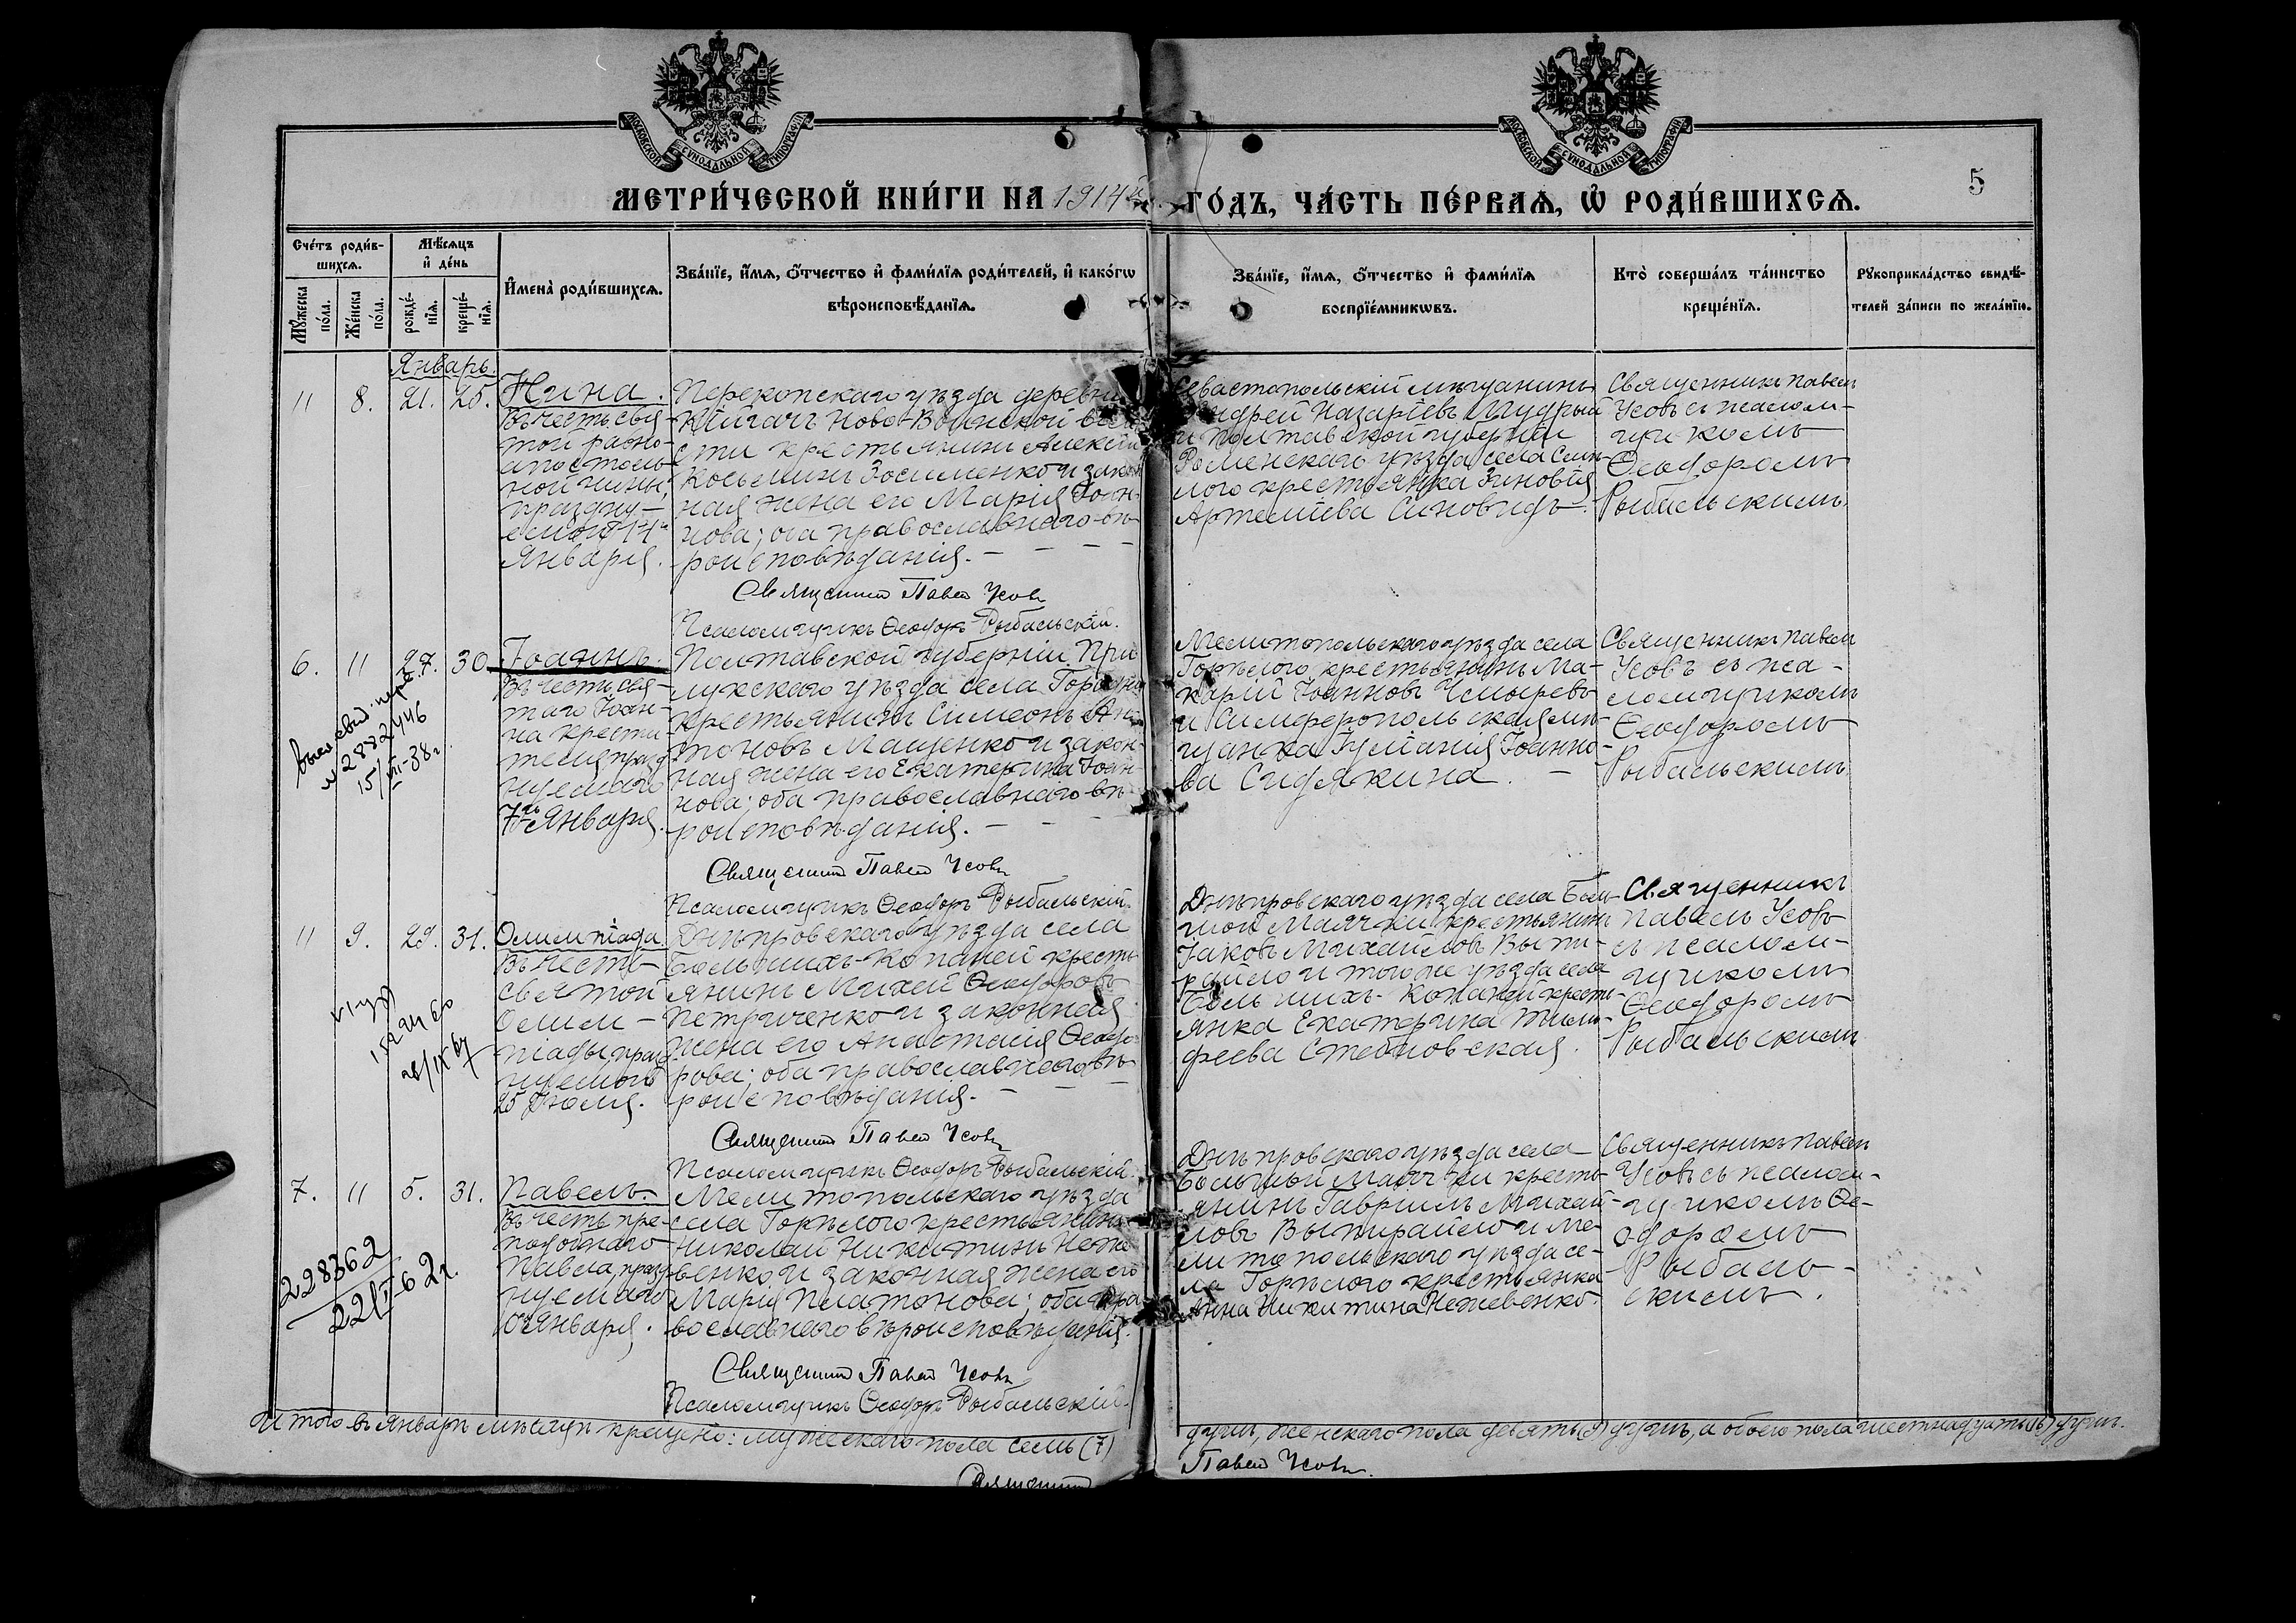 МОСКОВСКОЙ СѴНОДАЛЬНОЙ ТИПОГРАФІИ
МОСКОВСКОЙ СѴНОДАЛЬНОЙ ТИПОГРАФІИ
МЕТРИ́ЧЕСКОЙ КНИ́ГИ НА 1914й ГО́ДЪ, ЧА́СТЬ ПЕ́РВАѦ, Ѡ РОДИ́ВШИХСѦ.
5
Сче́тъ роди́в-
шихсѧ.
Мꙋ́жеска по́ла.
Же́нска по́ла.
Мѣ́сѧцъ
и҆ де́нь
рожде́-
нїѧ.
креще́-
нїѧ.
И҆мена̀ роди́вшихсѧ.
Зва́нїе, и҆́мѧ, ѻ҆́тчество и҆ фами́лїѧ роди́телей, и҆ како́гѡ
вѣроисповѣ́данїѧ.
Зва́нїе, и҆́мѧ, ѻ҆́тчество и҆ фами́лїѧ
воспрїе́мникѡвъ.
Кто̀ соверша́лъ та́инство
креще́нїѧ.
Рꙋкоприкла́дство свидѣ́-
телей за́писи по жела́нїю.
Январь.
11 8. 21. 25.
Нина.
Въ честь свя-
той равно-
апостоль-
ной Нины,
праздну-
емой 14го
Января.
Перекопскаго уѣзда деревни
Кійгачъ Ново-Воинской воло
сти крестьянинъ Алексій
Косьминъ Зосименко и закон
ная жена его Марія Іоан-
нова; оба православнаго вѣ-
роисповѣданія.
Священникъ Павелъ Усовъ
Псаломщикъ Ѳеодоръ Рыбальскій.
Севастопольскій мѣщанинъ
Андрей Назаріевъ Мудрый
и Полтавской губерніи
Роменскаго уѣзда села
крестьянка Зиновія
Артеміева Синовидъ.
Священникъ Павелъ
Усовъ съ псалом-
щикомъ
Ѳеодоромъ
Рыбальскимъ.
6. 11 27. 30
Іоаннъ.
Въ честь свя-
таго Іоан-
на Крести-
теля празд
нуемаго
7го Января.
№ 2882446
15/VII-38г.
Полтавской губерніи При-
лукскаго уѣзда села
крестьянинъ Симеонъ Ан-
тоновъ Мащенко и закон-
ная жена его Екатерина Іоан-
нова; оба православнаго вѣ-
роисповѣданія.
Священникъ Павелъ Усовъ
Псаломщикъ Ѳеодоръ Рыбальскій.
Мелитопольскаго уѣзда села
Горѣлого крестьянинъ Ма-
карій Іоанновъ
и Симферопольская мѣ-
щанка Іуліанія Іоанно-
ва Сидякина.
Священникъ Павелъ
Усовъ съ пса-
ломщикомъ
Ѳеодоромъ
Рыбальскимъ.
11 9. 29. 31.
Олимпіада.
Въ честь
святой
Олим-
піады, празд
нуемой
25 Іюля.
Днѣпровскаго уѣзда села
Большихъ-Копаней кресть
янинъ Михей Ѳеодоровъ
Петриченко и законная
жена его Анастасія Ѳеодо-
рова; оба православнаго вѣ-
роисповѣданія.
Священникъ Павелъ Усовъ
Псаломщикъ Ѳеодоръ Рыбальскій.
Днѣпровскаго уѣзда села Боль-
шой Маячки крестьянинъ
Іаковъ Михайловъ Выти-
райло и того же уѣзда села
Большихъ-Копаней кресть-
янка Екатерина Тимо-
феева Стебловская.
Священникъ
Павелъ Усовъ
съ псалом-
щикомъ
Ѳеодоромъ
Рыбальскимъ
7. 11 5. 31.
Павелъ.
Въ честь пре-
подобнаго
Павла, празд
нуемаго
Января.
228362
22/I-62г.
Мелитопольскаго уѣзда
села Горѣлого крестьянинъ
Николай Никитинъ Неже-
венко и законная жена его
Марія Платонова; оба пра
вославнаго вѣроисповѣданія.
Священникъ Павелъ Усовъ
Псаломщикъ Ѳеодоръ Рыбальскій.
Днѣпровскаго уѣзда села
Большой Маячки кресть-
янинъ Гавріилъ Михай-
ловъ Вытирайло и Ме-
литопольскаго уѣзда се-
ла Горѣлого крестьянка
Анна Никитина Нежевенко.
Священникъ Павелъ
Усовъ съ псалом-
щикомъ Ѳе-
одоромъ
Рыбаль-
скимъ.
Итого въ Январѣ мѣсяцѣ крещено: мужескаго пола семь (7) душъ, женскаго пола девять (9) душъ, а обоего пола шестнадцать (16) душъ.
Священникъ Павелъ Усовъ.